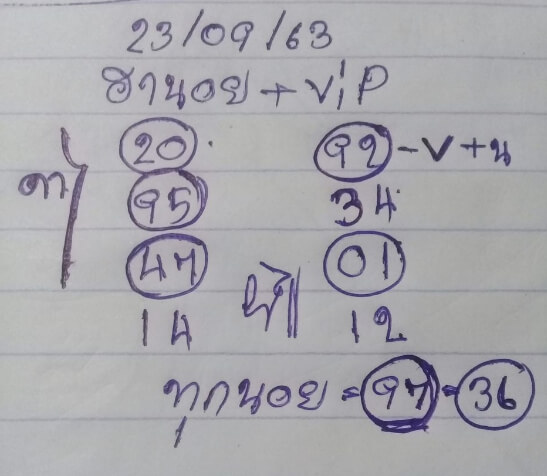 23/09/63
ฮานอย + ViP
20 92 - V + น
95 34
47 01
14 12
ทุกนอย = 97 = 36